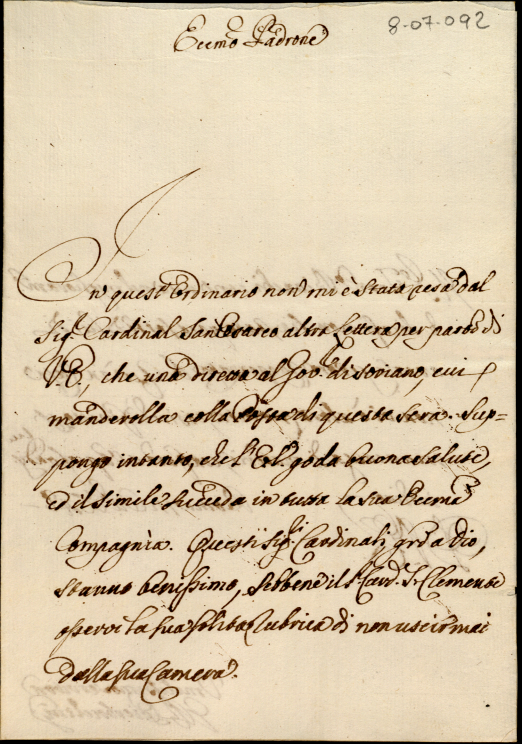 8-07-092
Eccmo Padrone
In quest'Ordinario non mi è stata resa dal
Sigr. Cardinal San Cesareo altra Lettera per parte di
V. E., che una diretta al Govre. di Soriano, cui
manderolla colla Posta di questa sera. Sup-
pongo intanto, che l'E. V. goda buona salute,
ed il simile succeda in tutta la sua Eccma
Compagnia. Questi Sigri. Cardinali, grã a Dio,
stanno benissimo, sebbene il S. Card. S. Clemente
osservi la sua solita rubrica di non uscir mai
dalla sua Camera.